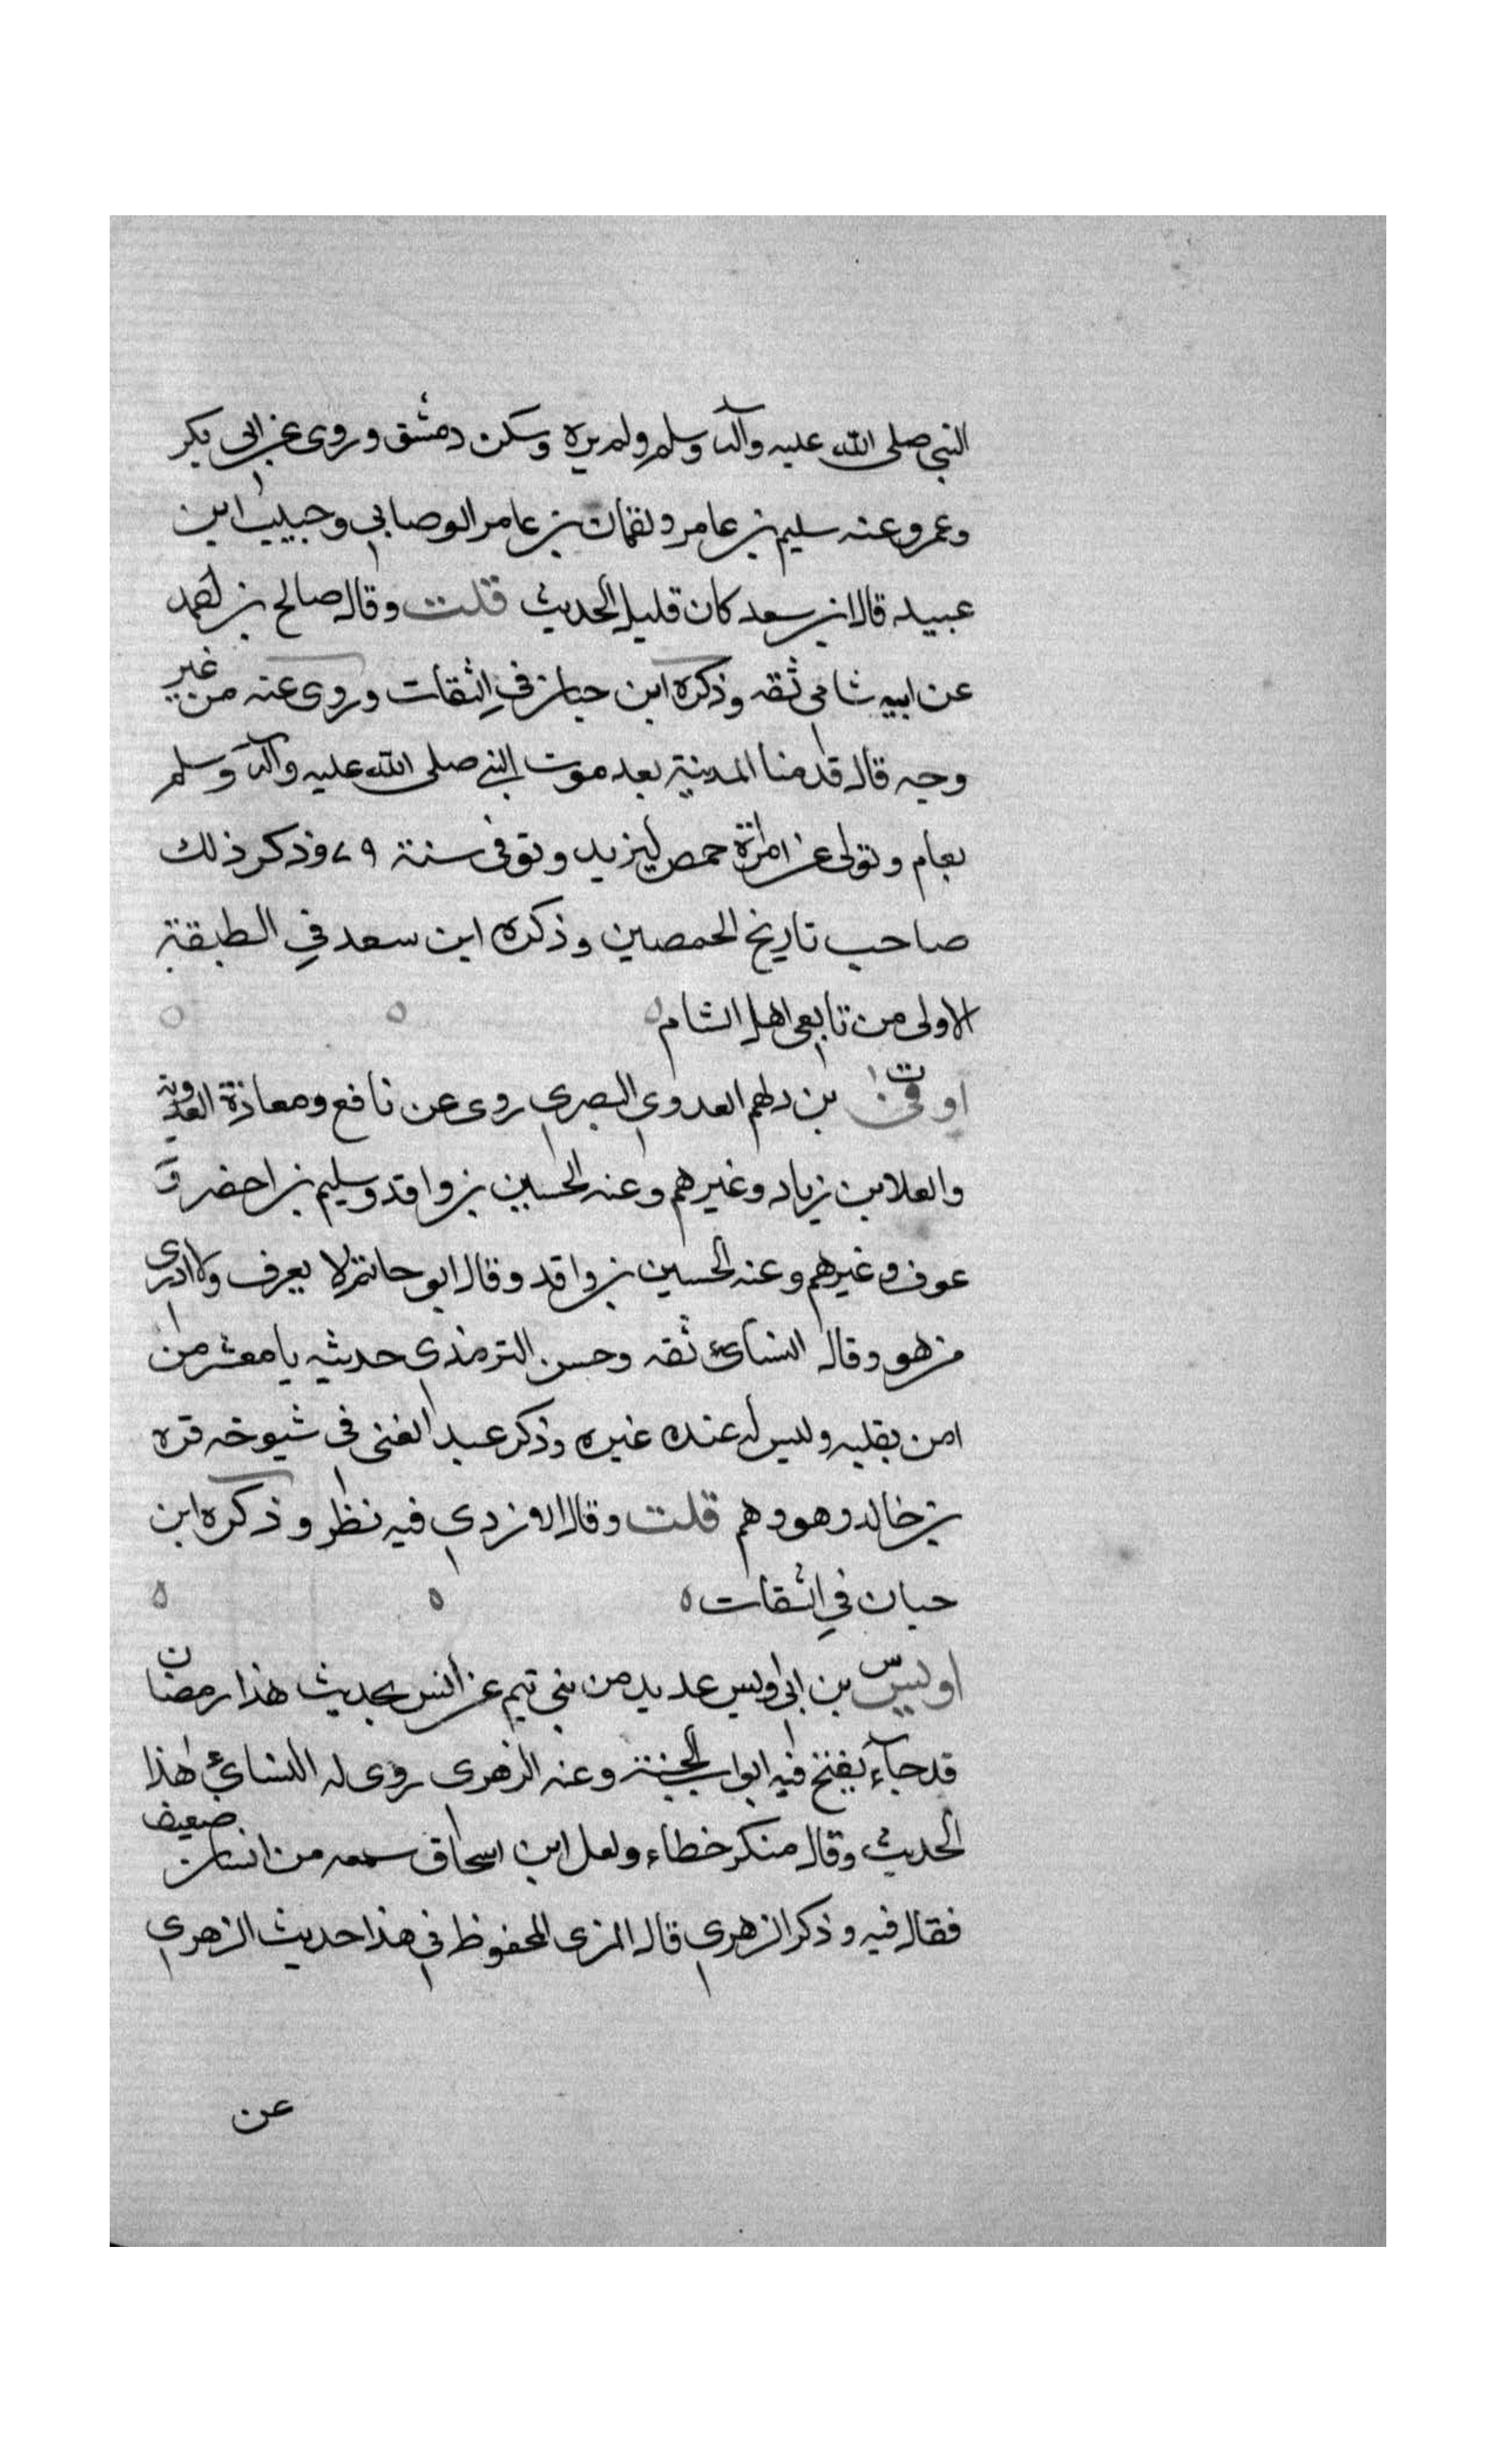 النبي صلى الله عليه وآله وسلم ولم يره وسكن دمشق وروى عن ابي بكر
وعمر وعنه سليم بن عامر ولقمان بن عامر الوصابي وحبيب ابن
عبيد قال ابن سعد كان قليل الحديث قلت وقال صالح بن احمد
عن ابيه شامي ثقه وذكره ابن حبان في الثقات وروى عنه من غير
وجه قال قدمنا المدينة بعد موت النبي صلى الله عليه وآله وسلم
بعام وتولى عن امرة حمص ليزيد وتوفى سنة ٧٩ وذكر ذلك
صاحب تاريخ الحمصين وذكره ابن سعد في الطبقة
الاولى من تابعي اهل الشام
ت اوفى بن دلهم العدوي البصري روى عن نافع ومعاذة العدوية
والعلا بن زياد وغيرهم وعنه الحسين بن واقد وسليم بن احضر و
عوف وغيرهم وعنه الحسين بن واقد وقال ابو حاتم لا يعرف ولا ادرى
من هو وقال النسائ ثقه وحسن الترمذي حديثه يا معشر من
امن بقلبه وليس له عنده غيره وذكر عبد الغنى فى شيوخه قره
بن خالد وهو وهم قلت وقال الازدي فيه نظر وذكره ابن
حبان في الثقات
س اويس بن ابى اويس عديد من بني تيم عن انس بحديث هذا رمضان
قد جآء يفتح فيه ابواب الجنة وعنه الزهرى روى له النسائي هذا
الحديث وقال منكر خطاء ولعل ابن اسحاق سمعه من انسان ضعيف
فقال فيه وذكر الزهري قال المزى المحفوظ في هذا حديث الزهري
عن